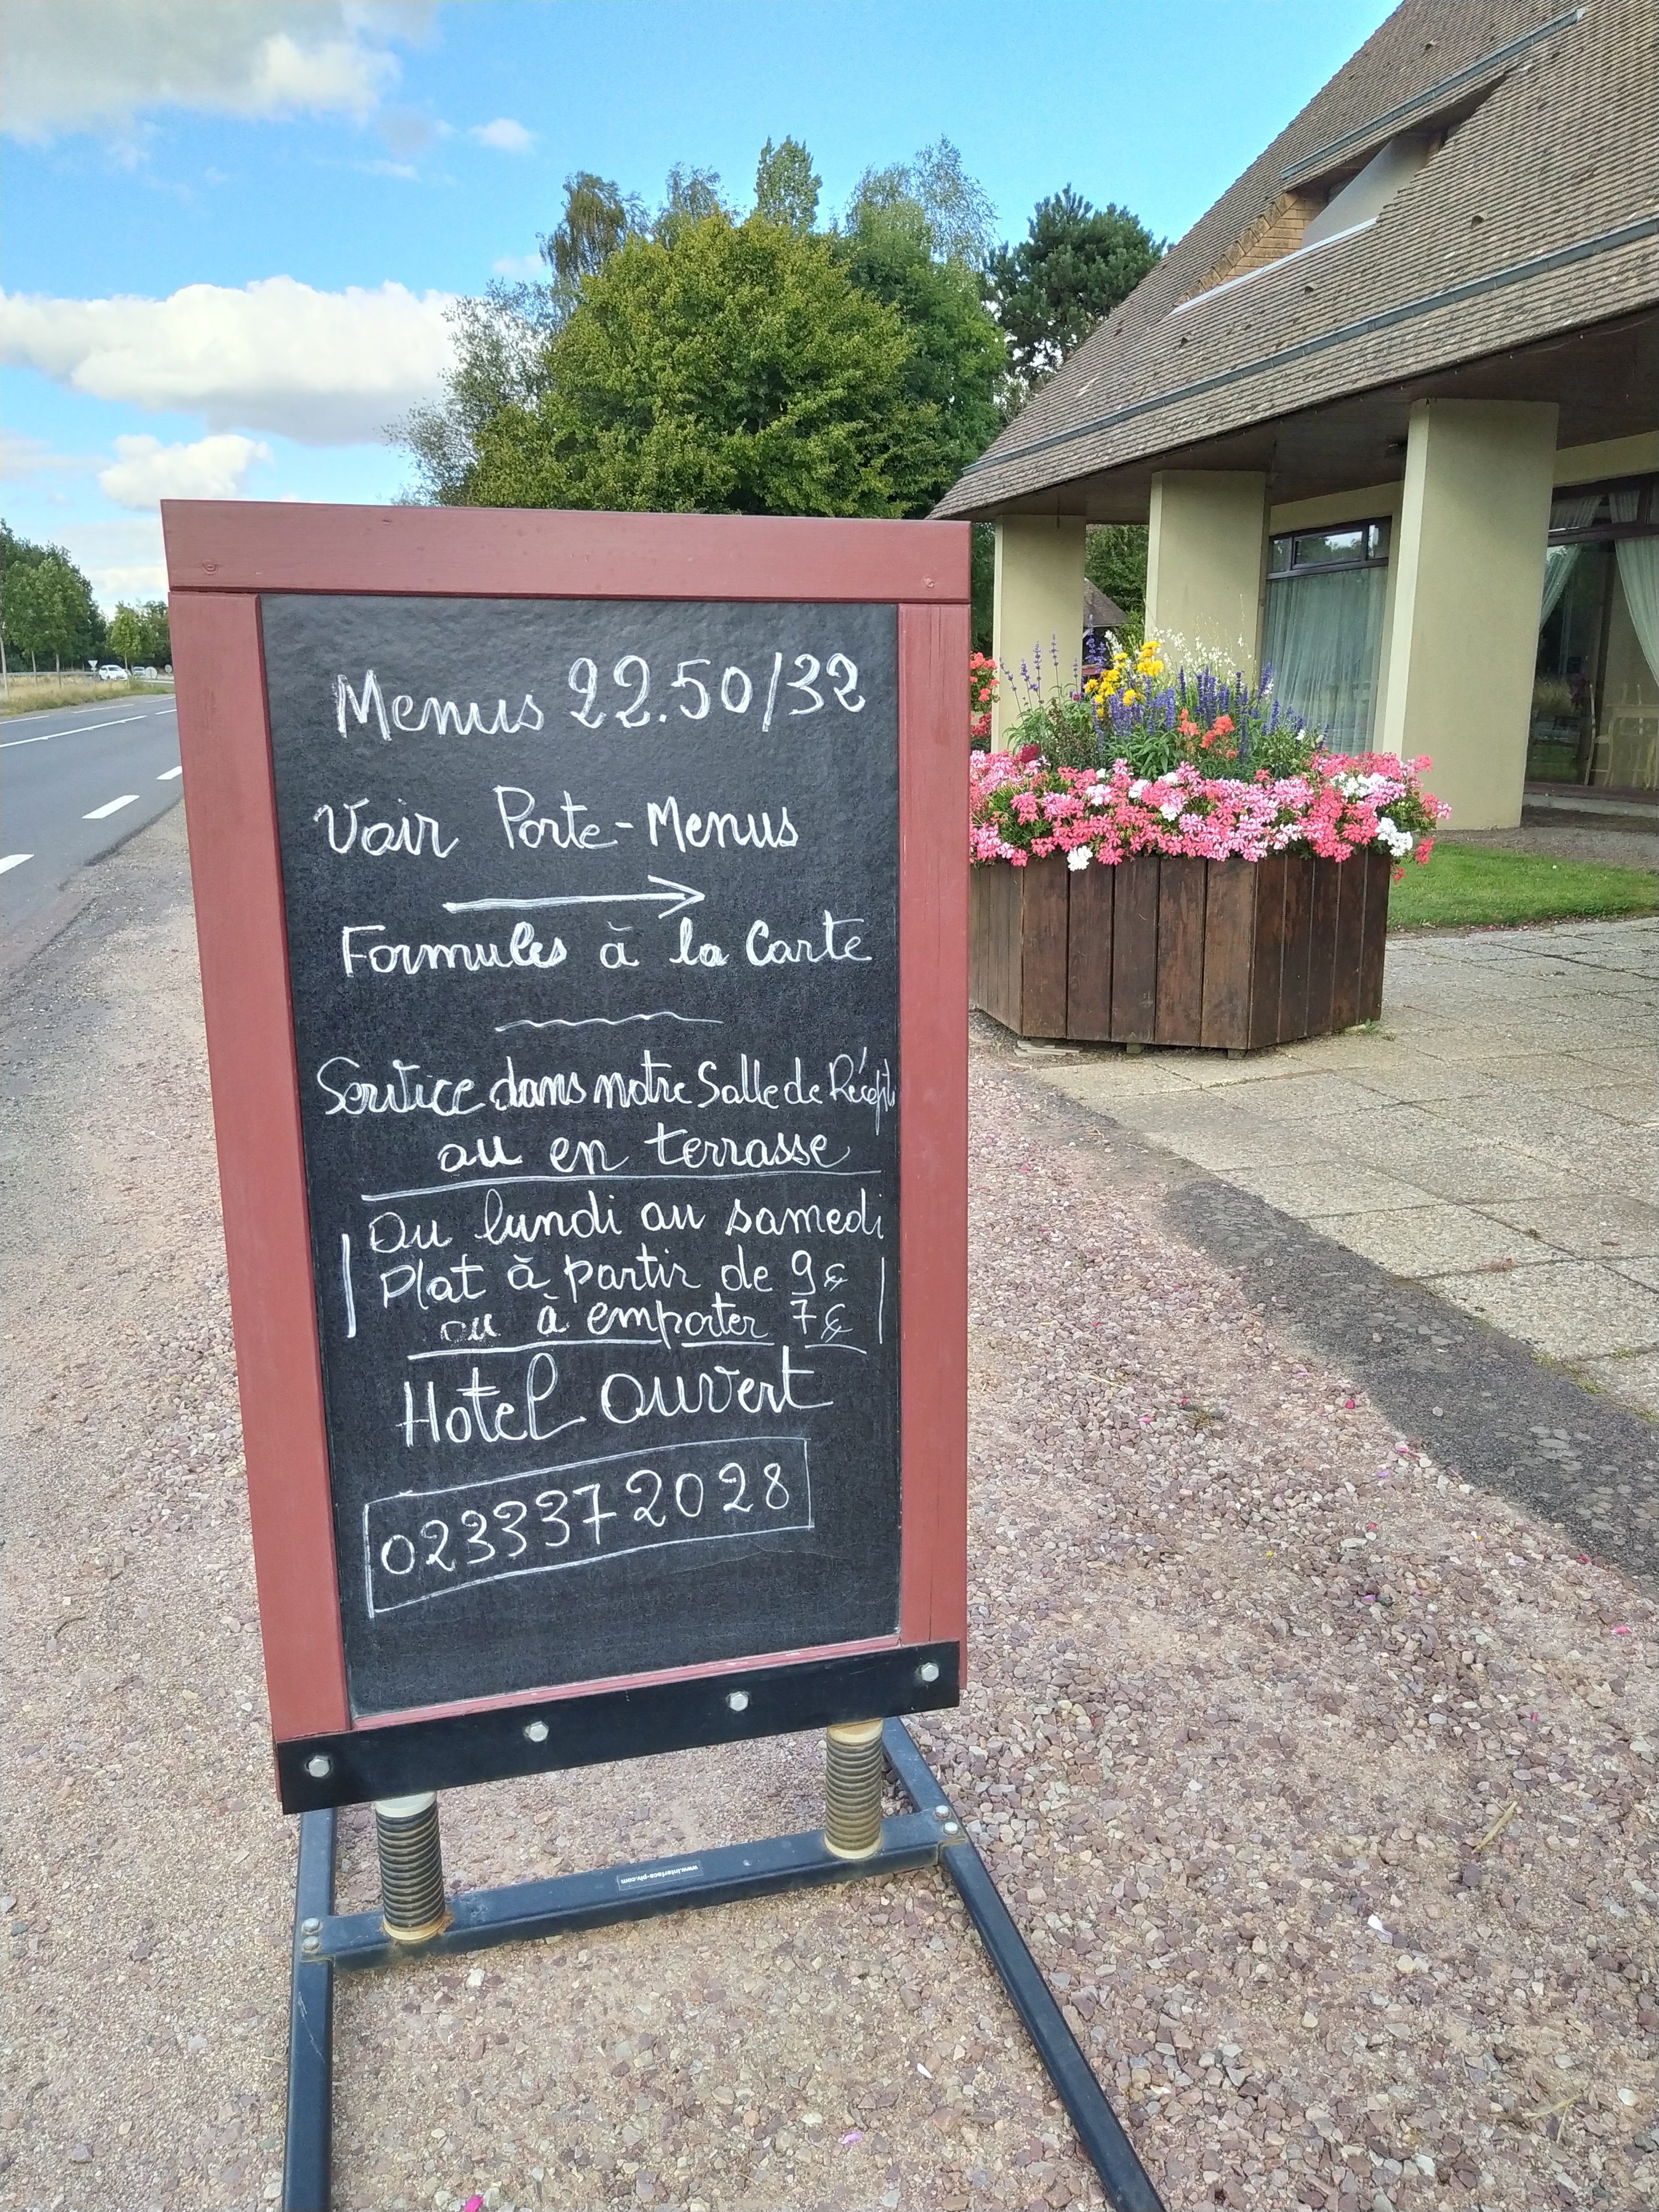 Menus 22.50/32
Voir Porte-Menus
Formules à la Carte
Service dans notre Salle de Récept
ou en terrasse
Du lundi au samedi
Plat à partir de 9€
ou à emporter 7€
Hotel ouvert
0233372028
www.interface-plv.com